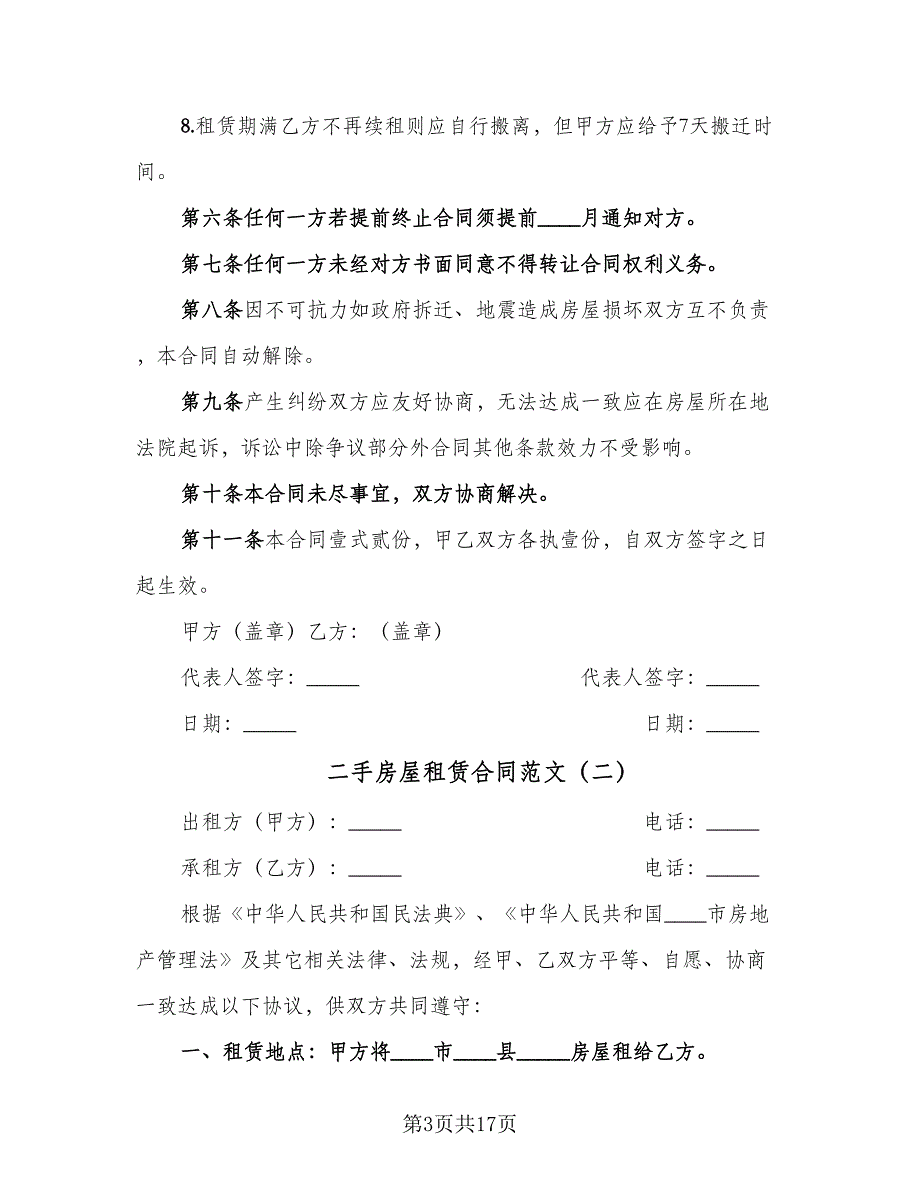 8.租赁期满乙方不再续租则应自行搬离，但甲方应给予7天搬迁时
间。
第六条任何一方若提前终止合同须提前____月通知对方。
第七条任何一方未经对方书面同意不得转让合同权利义务。
第八条因不可抗力如政府拆迁、地震造成房屋损坏双方互不负责
，本合同自动解除。
第九条产生纠纷双方应友好协商，无法达成一致应在房屋所在地
法院起诉，诉讼中除争议部分外合同其他条款效力不受影响。
第十条本合同未尽事宜，双方协商解决。
第十一条本合同壹式贰份，甲乙双方各执壹份，自双方签字之日
起生效。
甲方（盖章）乙方：（盖章）
代表人签字：_____ 代表人签字：_____
日期：_____ 日期：_____
二手房屋租赁合同范文（二）
出租方（甲方）：_____ 电话：_____
承租方（乙方）：_____ 电话：_____
根据《中华人民共和国民法典》、《中华人民共和国____市房地
产管理法》及其它相关法律、法规，经甲、乙双方平等、自愿、协商
一致达成以下协议，供双方共同遵守：
一、租赁地点：甲方将____市____县_____房屋租给乙方。
第3页共17页